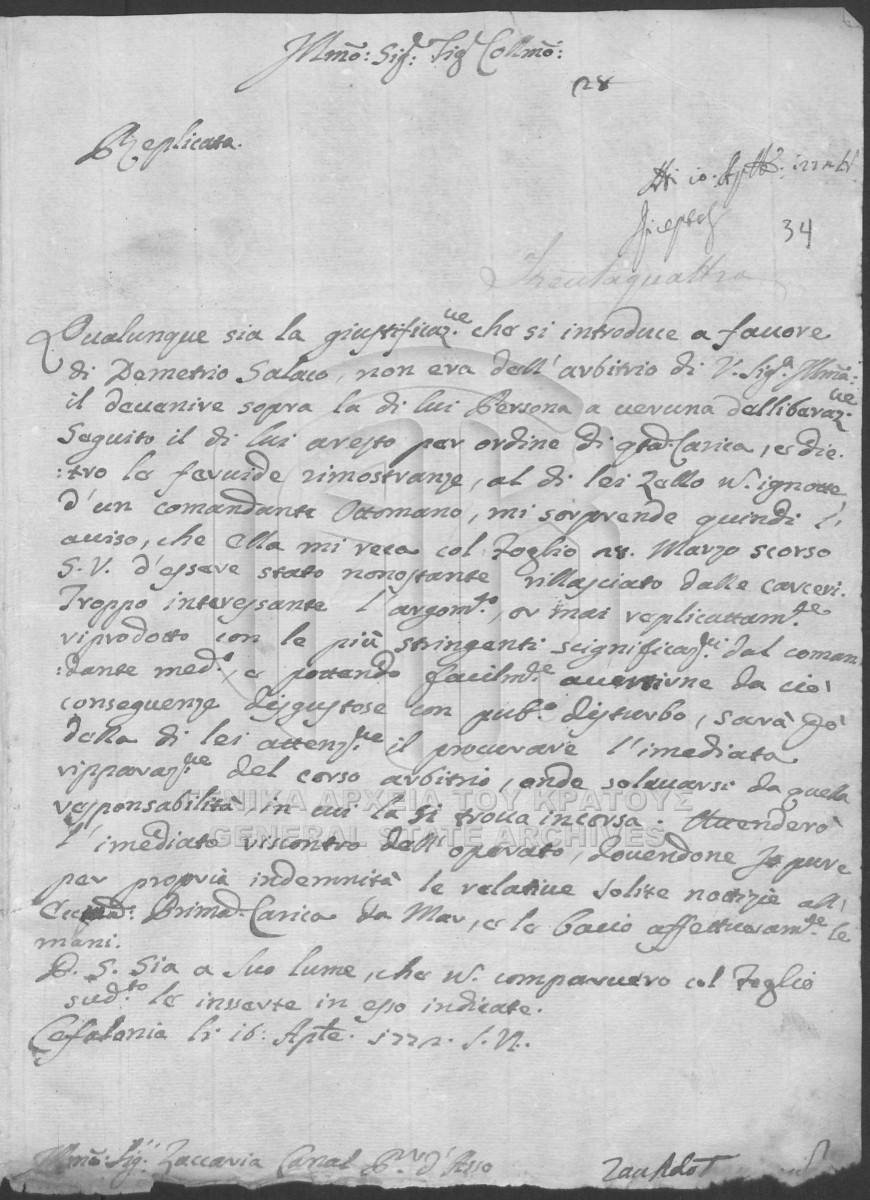 Illmo: Sigr: Sigr Collmo:
28
Replicata.
34
Trentaquattro
Qualunque sia la giustificaz.ne che si introduce a favore
di Demetrio Salaco, non era dell'arbitrio di V. Sig.a Illma:
il devenire sopra la di lui Persona a veruna dellibaraz.ne
Seguito il di lui aresto per ordine di qta Carica, e die:
:tro le fervide rimostranze, al di lei Zello n. ignotte
d'un comandante Ottomano, mi sorprende quindi l'
aviso, che Ella mi reca col Foglio 28. Marzo scorso
S. V. d'essere stato nonostante rillasciato dalle carceri.
Troppo interessante l'argom.to, or mai replicattam.te
riprodotto con le più stringenti significaz.ni dal coman
:dante med.o, e pottendo facilm.te avenirne da ciò
conseguenze disgustose con pub.o disturbo, sarà però
dalla di lei attenz.ne il procurare l'imediata
ripparaz.ne del corso arbitrio, onde solevarsi da quella
responsabilità, in cui la si trova incorsa. Attenderò
l'imediato riscontro dell'operato, dovendone Io pure
per propria indemnità le relative solite nottizie all'
Prima Carica da Mar, e le bacio affettuosam.te le
mani.
P. S. Sia a suo lume, che n. comparvero col Foglio
sud.to le inserte in esso indicate.
Cefalonia li 16: Aple. 1772. S. N.
ΓΕΝΙΚΑ ΑΡΧΕΙΑ ΤΟΥ ΚΡΑΤΟΥΣ
GENERAL STATE ARCHIVES
Illmo: Sig: Zaccaria Canal P.r d'Asso